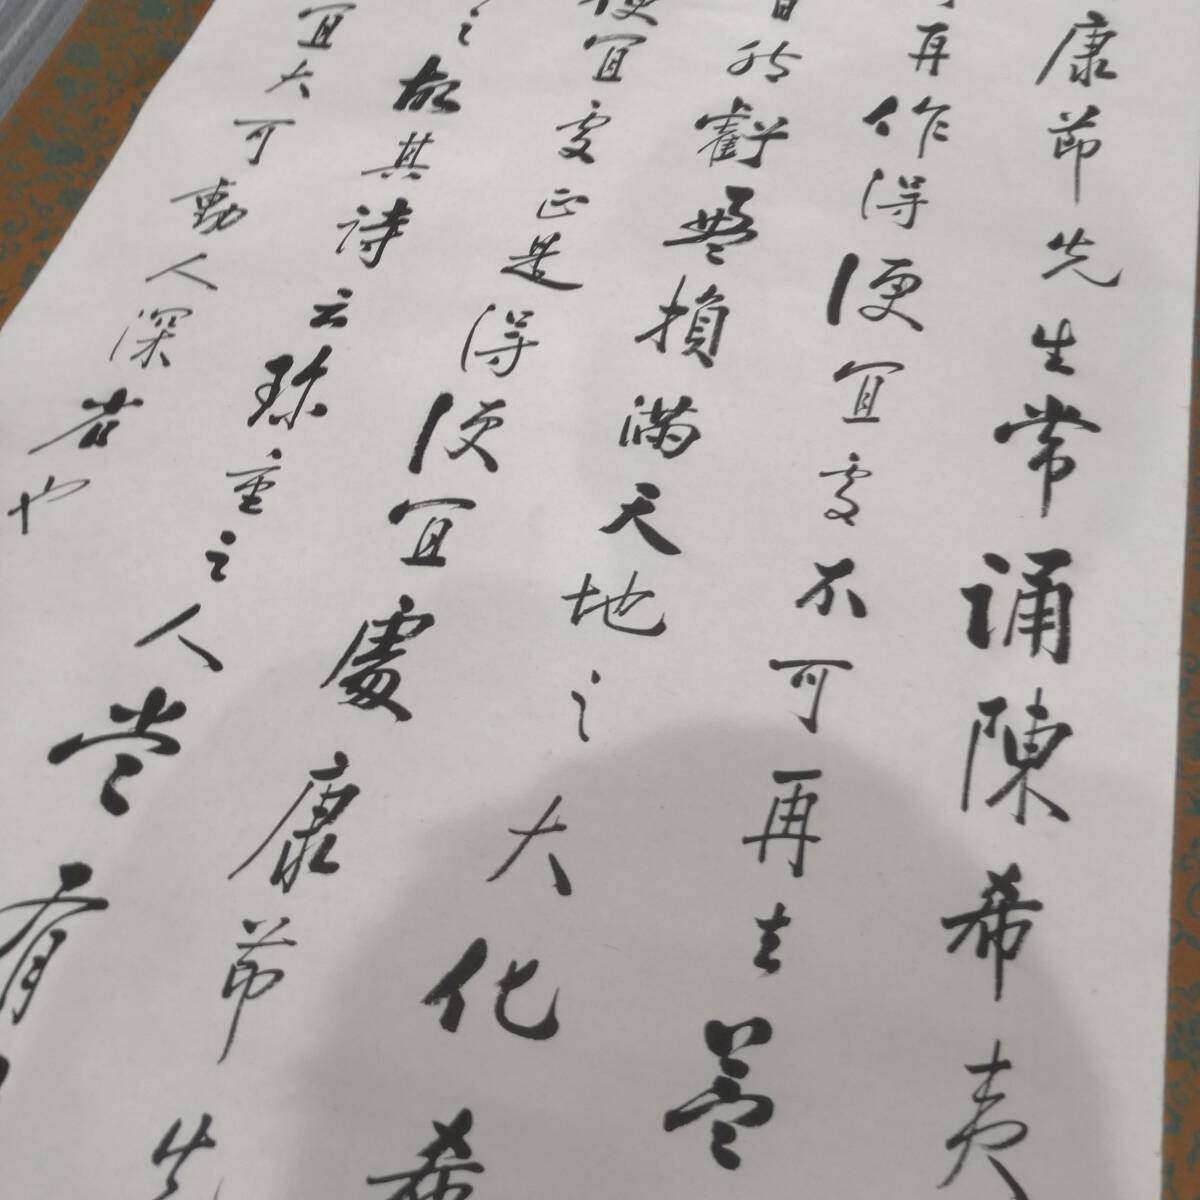 康節先生常誦陳希夷
再作得便宜處不可再去蓋
虧盈損滿天地之大化希
便宜處正是得便宜處康節先
之故其詩云珍重之人嘗有
宜大可動人深省也